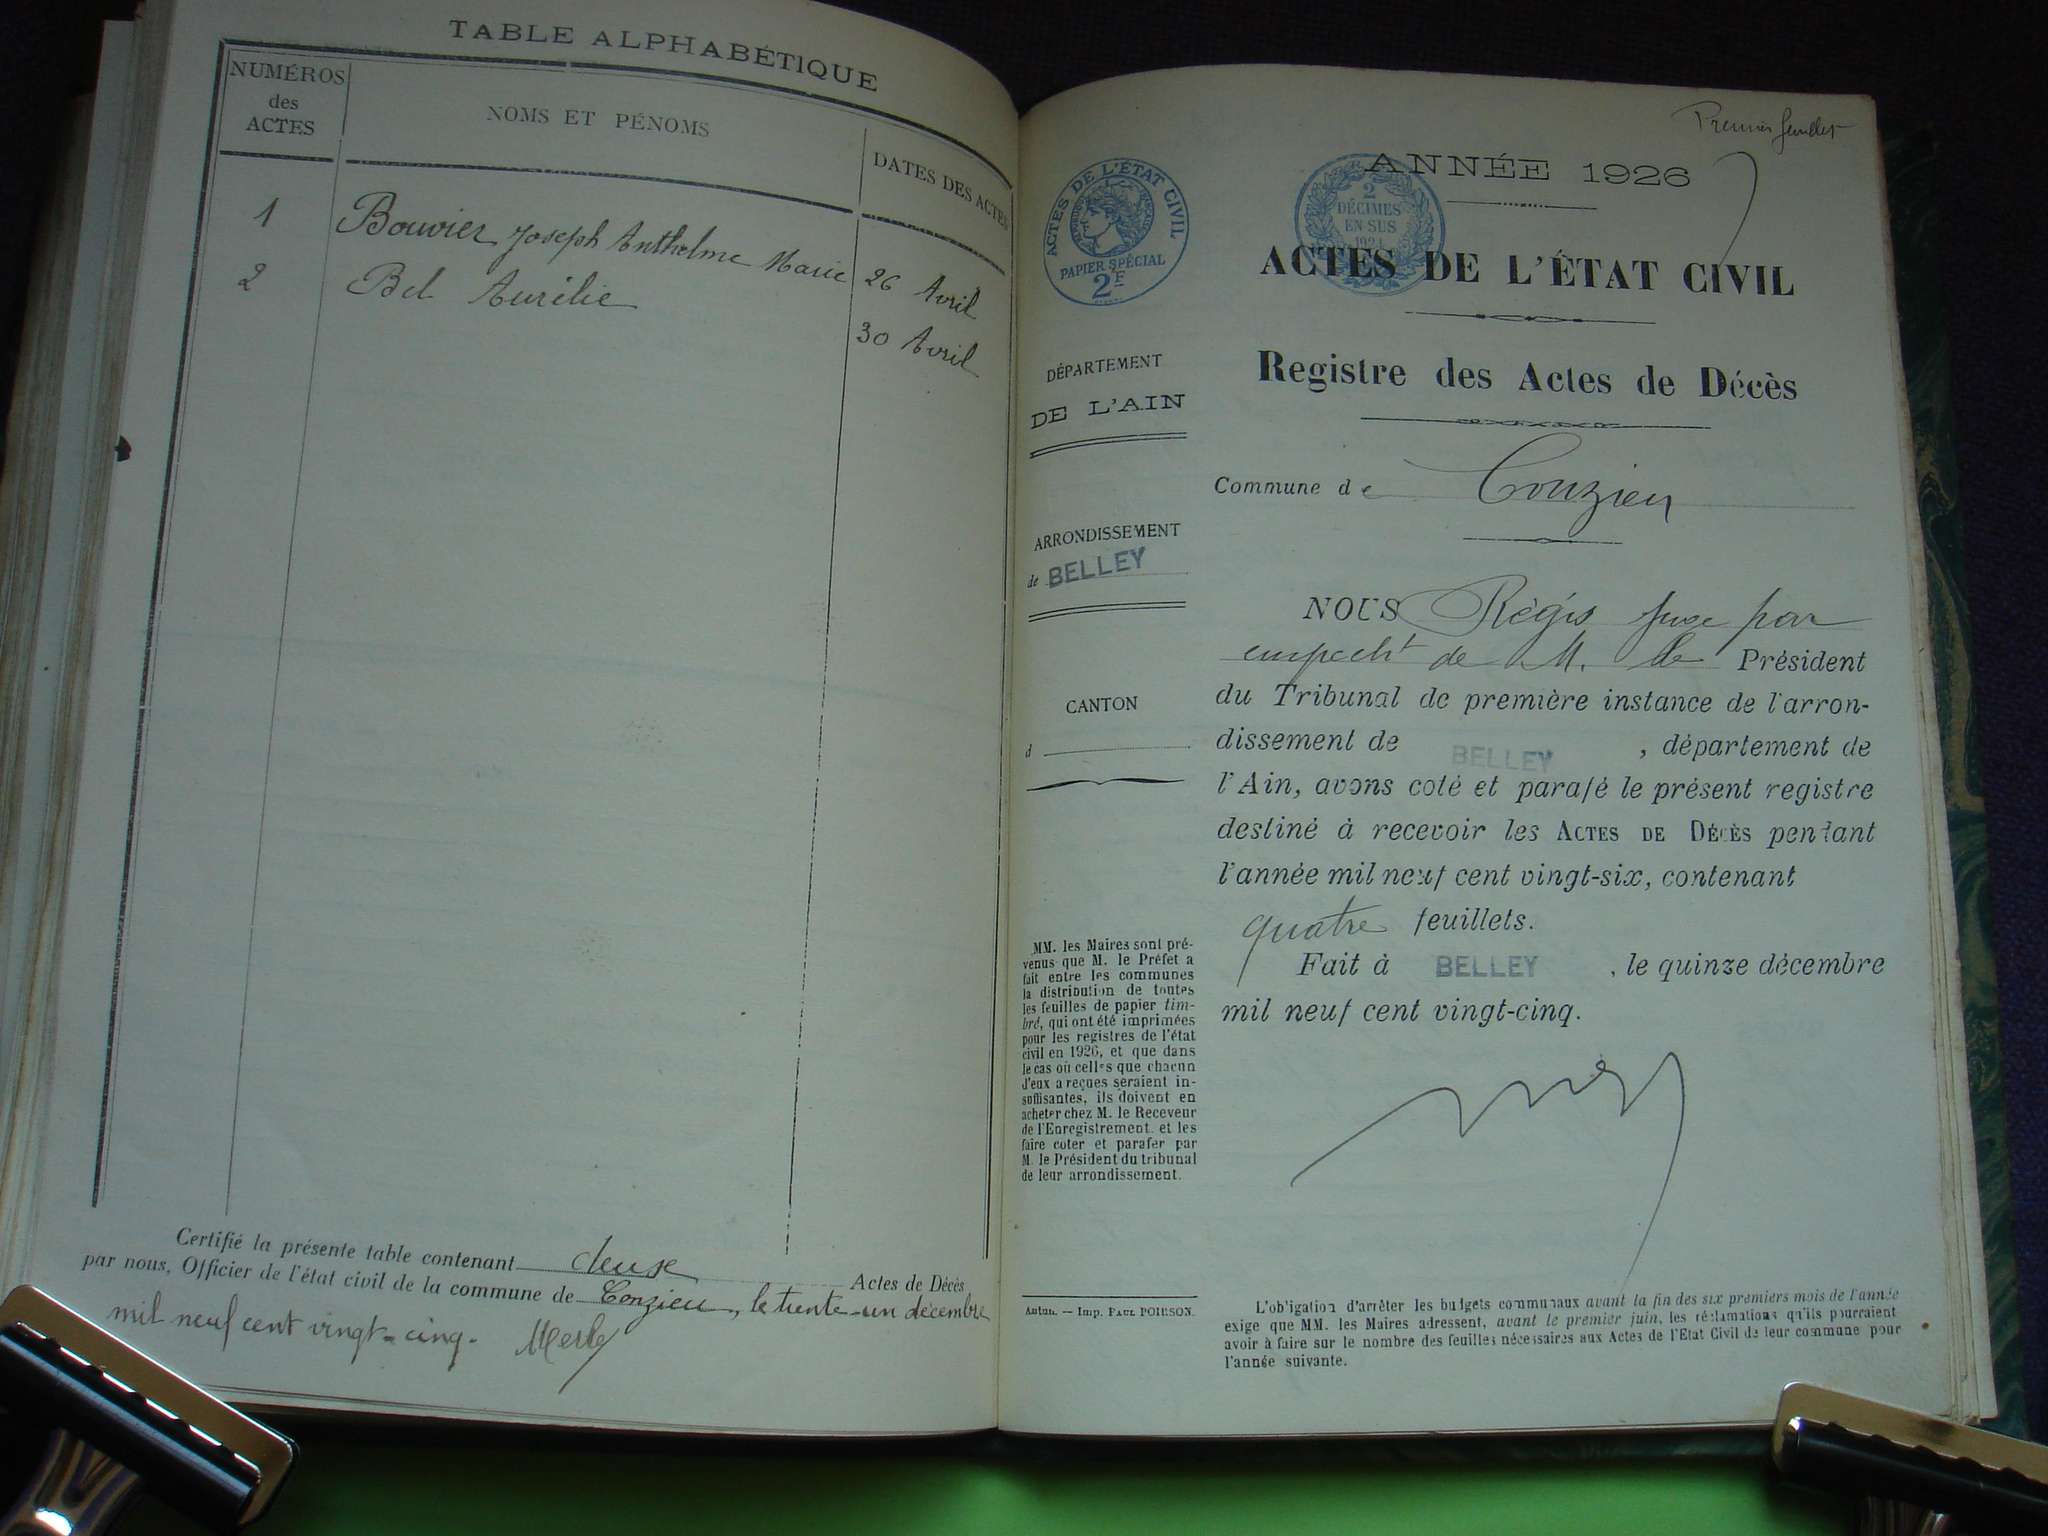 TABLE ALPHABÉTIQUE
NUMÉROS
des
ACTES
NOMS ET PÉNOMS
DATES DES ACTES
1 Bouvier Joseph Anthelme Marie 26 Avril
2 Bel Aurélie 30 Avril
Certifié la présente table contenant deuse Actes de Décès
par nous, Officier de l'état civil de la commune de Conzieu, le trente-un décembre
mil neuf cent vingt-cinq. Merle
Premier feuillet
ANNÉE 1926
ACTES DE L'ÉTAT CIVIL
PAPIER SPÉCIAL
2F
2
DÉCIMES
EN SUS
1924
ACTES DE L'ÉTAT CIVIL
Registre des Actes de Décès
DÉPARTEMENT
DE L'AIN
Commune de Conzieu
ARRONDISSEMENT
de BELLEY
CANTON
d
NOUS Régis juge par
empecht de M. le Président
du Tribunal de première instance de l'arron-
dissement de BELLEY, département de
l'Ain, avons coté et parafé le présent registre
destiné à recevoir les ACTES DE DÉCÈS pendant
l'année mil neuf cent vingt-six, contenant
quatre feuillets.
Fait à BELLEY, le quinze décembre
mil neuf cent vingt-cinq.
MM. les Maires sont pré-
venus que M. le Préfet a
fait entre les communes
la distribution de toutes
les feuilles de papier tim-
bré, qui ont été imprimées
pour les registres de l'état
civil en 1926, et que dans
le cas où celles que chacun
d'eux a reçues seraient in-
suffisantes, ils doivent en
acheter chez M. le Receveur
de l'Enregistrement. et les
faire coter et parafer par
M. le Président du tribunal
de leur arrondissement.
Autun. — Imp. PAUL POIRSON.
L'obligation d'arrêter les budgets communaux avant la fin des six premiers mois de l'année
exige que MM. les Maires adressent, avant le premier juin, les réclamations qu'ils pourraient
avoir à faire sur le nombre des feuilles nécessaires aux Actes de l'Etat Civil de leur commune pour
l'année suivante.